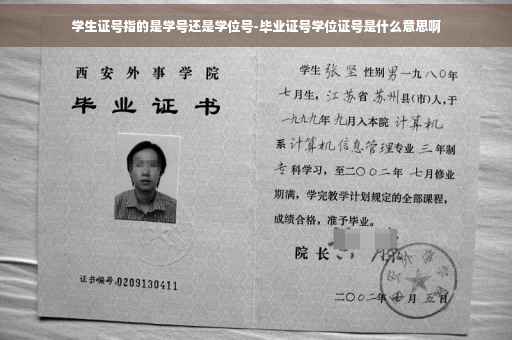 学生证号指的是学号还是学位号-毕业证号学位证号是什么意思啊
西安外事学院
毕业证书
证书编号:0209130411
学生 张坚 性别男一九八〇年
七月生，江苏省苏州县(市)人,于
一九九九年九月入本院 计算机
系计算机信息管理专业 三 年制
专科学习，至二〇〇二年 七月修业
期满，学完教学计划规定的全部课程，
成绩合格，准予毕业。
院长
二〇〇二年 月五日